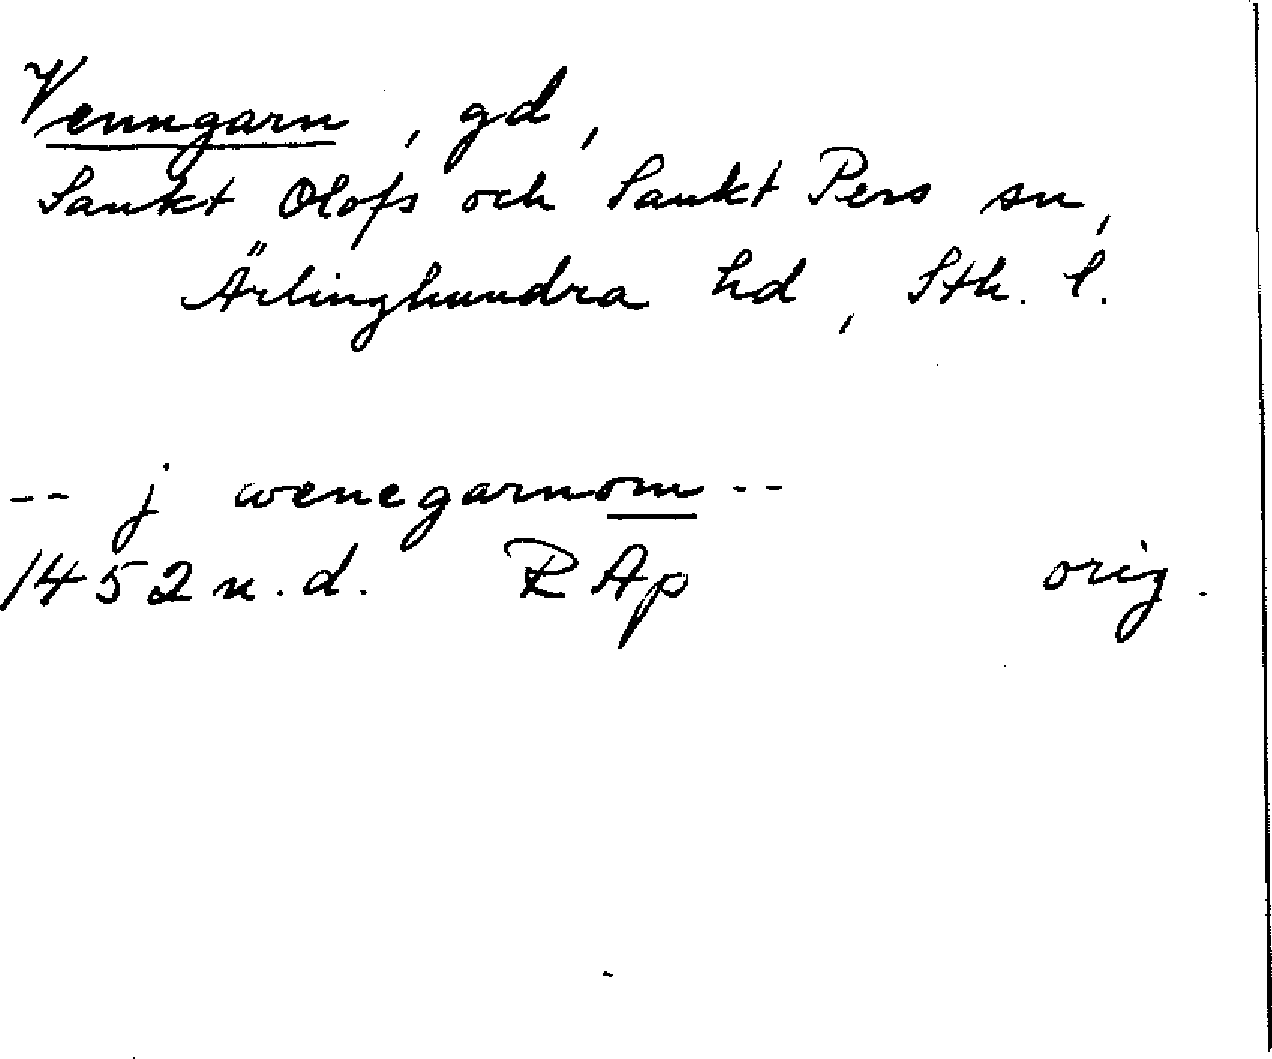 Venngarn, gd,
Sankt Olofs och Sankt Pers sn,
Ärlinghundra hd, Sth. l.
-- j wenegarnom --
1452 n.d. RAp orig.